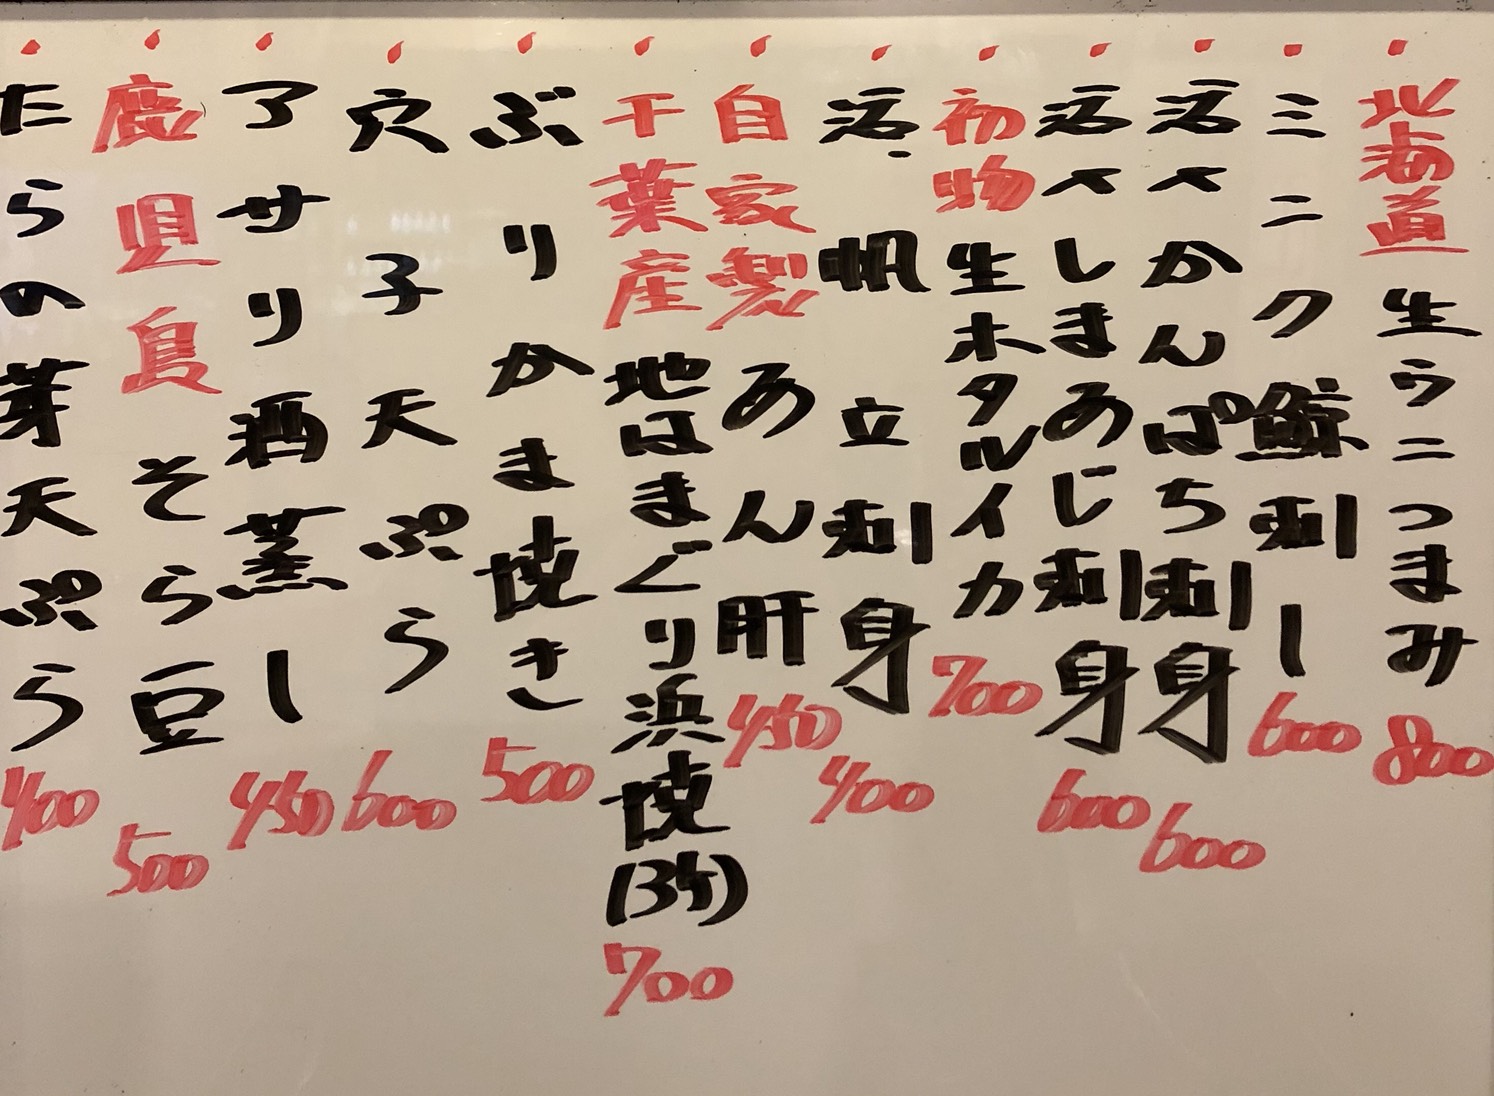 北海道生ウニつまみ 800
ミンク鯨刺し 600
活〆かんぱち刺身 600
活〆しまあじ刺身 600
初物生ホタルイカ 700
活帆立刺身 400
自家製あん肝 450
千葉産地はまぐり浜焼(3ケ) 700
ぶりかま焼き 500
穴子天ぷら 600
アサリ酒蒸し 450
鹿児島そら豆 500
たらの芽天ぷら 400